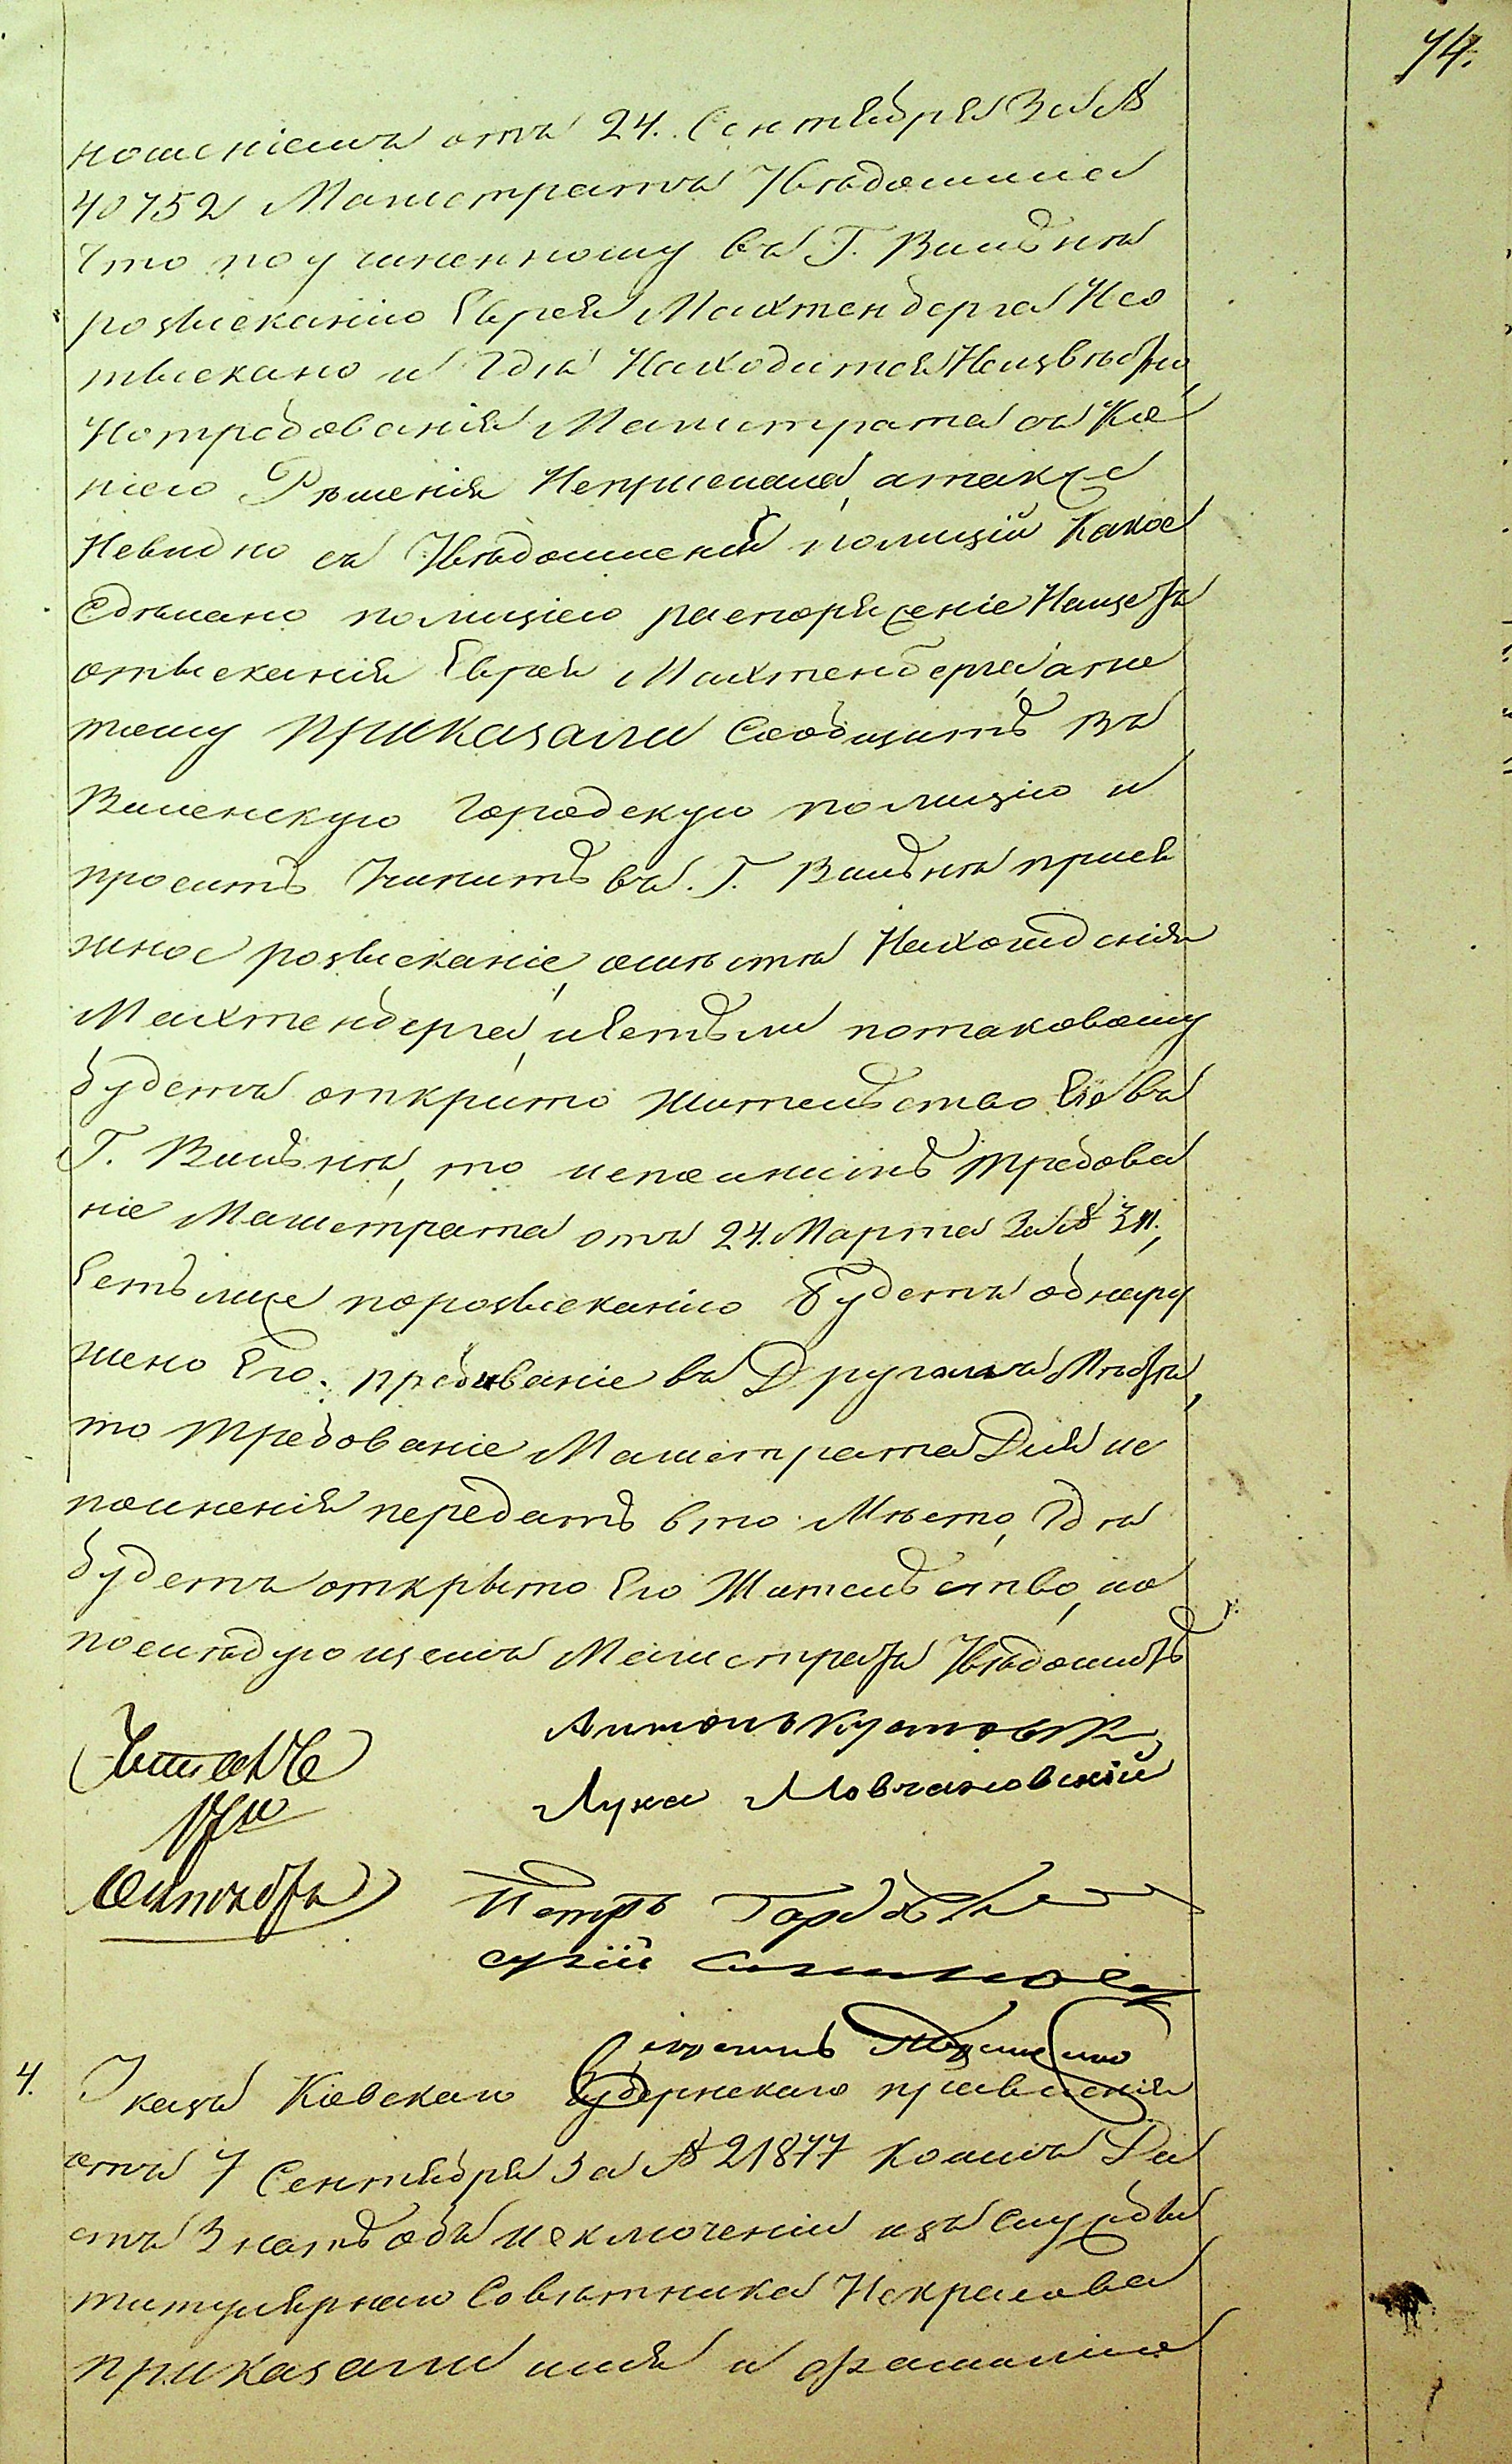 74.
ношеніемъ отъ 24. Сентября За №
40752 Магистратъ Увѣдомила
Что поучиненному въ Г. Вильнѣ
розысканію Еврея Махтенберга Нео
тыскано и Гдѣ Находится Неизвѣстно
Но требованія Магистрата съ Ко
піею Рѣшенія Неприслала, атакже
Невидно съ Увѣдомленія полиціи Какое
Сдѣлано полиціею распоряженіе Нащетъ
отысканія Еврея Махтенберга, апо
тому приказали Сообщить Въ
Виленскую Городскую полицію и
просить Учинить въ. Г. Вильнѣ прилѣ
жное розысканіе, омѣстѣ Нахожденія
Махтенберга, иЕстьли потаковому
будетъ открито жительство Его въ
Г. Вильнѣ, то исполнить требова
ніе Магистрата отъ 24. Марта За №
Естьлиже порозысканію будетъ обнару
жено Его. пребиваніе въ Другомъ Мѣстѣ,
то требованіе Магистрата Для ис
полненія передать вто Мѣсто, Гдѣ
будетъ открыто Его Жительство, ио
послѣдующемъ Магистратъ Увѣдомить
Антонъ
Лука Мовчановскій
Петръ
4. Указъ Кіевскаго Губернскаго правленія
отъ 7 Сентября За № 21877 Коимъ Да
етъ Знать объ исключеніи изъ Службы
титулярнаго Совѣтника Некрасова
приказали имя и фамилію